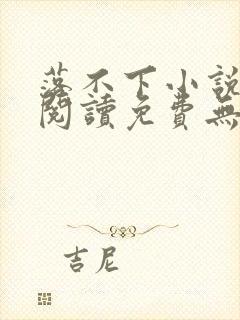 落不下小說
閱讀免費無
吉尼